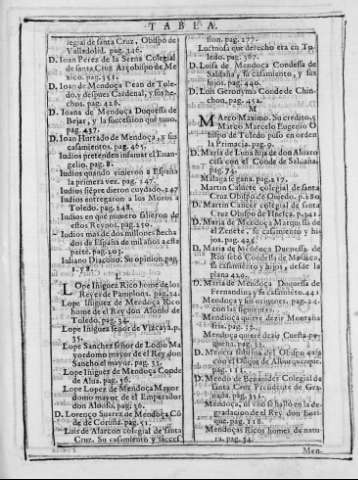 TABLA.
legial de santa Cruz, Obispo de
Valladolid. pag. 346.
D. Ioan Perez de la Serna Colegial
de santa Cruz Arçobispo de Me
xico. pag. 351.
D. Ioan de Mendoça Dean de Tole-
do, y despues Cardenal, y sus he-
chos. pag. 428.
D. Ioana de Mendoça Duquesa de
Bejar, y la succession que tuuo.
pag. 437.
D. Ioan Hurtado de Mendoça, y sus
casamientos. pag. 465.
Indios pretenden infamar el Euan-
gelio. pag. 8.
Indios quando vinieron a España
la primera vez. pag. 147.
Indios siẽpre fueron oxydado. 247
Indios entregaron a los Moros a
Toledo. pag. 248.
Indios en que numero salieron de
estos Reynos. pag. 250.
Indios mas de dos millones hechados
de España de mil años a esta
parte. pag. 203.
Iuliano Diacono. Su opinion. pag.
178.
L
Lope Iñiguez Rico home de los
Reyes de Pamplona. pag. 34.
Lope Iñiguez de Mendoça Rico
home de el Rey don Alonso de
Toledo. pag. 34.
Lope Iñiguez señor de Vizcaya. p.
35.
Lope Sanchez señor de Lodio Ma
yordomo mayor de el Rey don
Sancho el mayor. pag. 35.
Lope Iñiguez de Mendoça Conde
de Alua. pag. 36.
Lope Lopez de Mendoça Mayor
domo mayor de el Emperador
don Alonso. pag. 36.
D. Lorenço Suarez de Mendoça Cõ
de de Coruña. pag. 51.
Luis de Alarcon colegial de santa
Cruz. Su casamiento y succes
sion. pag. 277.
Luctuosa que derecho era en To-
ledo. pag. 367.
D. Luisa de Mendoça Condessa de
Saldaña, y su casamiento, y sus
hijos. pag. 440.
D. Luis Geronymo Conde de Chin-
chon. pag. 452.
M
Marco Maximo. Su credito,
Marco Marcelo Eugenio O
bispo de Toledo puso en orden
la Primacia. pag. 9.
D. Maria de Luna hija de don Aluaro
casa con el Conde de Saldaña.
pag. 74.
Malaga se gana. pag. 217.
Martin Caluete colegial de santa
Cruz Obispo de Ouiedo. p.280
Martin Caluete colegial de santa
Cruz Obispo de Huesca. p.341.
D. Maria de Mendoça Marquesa de
el Zenete, su casamiento y hi-
jos. pag. 425.
D. Maria de Mendoça Duquesa de
su casamiento y hijos, desde la
plana 429.
D. Maria de Mendoça Duquesa de
Fernandina, y su casamiento. 441
Mendoça y sus origenes. pag. 24.
con los siguientes.
Mendoça quiere dezir Montaña
fria. pag. 33.
Mendoça quiere dezir Cuesta pe-
queña. pag. 33.
D. Mencia sobrina del Obispo caya
don el Duque de Alburquerque.
pag. 151.
D. Mendo de Benauides Colegial de
santa Cruz Presidente de Gra-
nada. pag. 331.
Mendoça, si se hallò en la de
gradacion de el Rey don Enri-
que. pag. 118.
Mendoças Ricos homes de natu
ra. pag. 34.
Men.